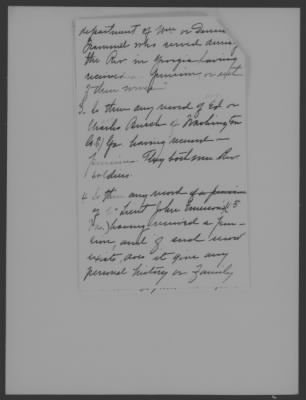 department of Wm or Dennis
Trammel who served during
the Rev in Georgia having
received a Pension, or extent
of their service
3. Is there any record of Ed or
Charles Burch of Washington
Co, Ga having received
pensions They both were Rev.
soldiers
4. Is there any record of a pension
of 1st Lieut John Emerson (of
Va.) having received a pen-
sion, and if such record
exists, does it give any
personal history or Family